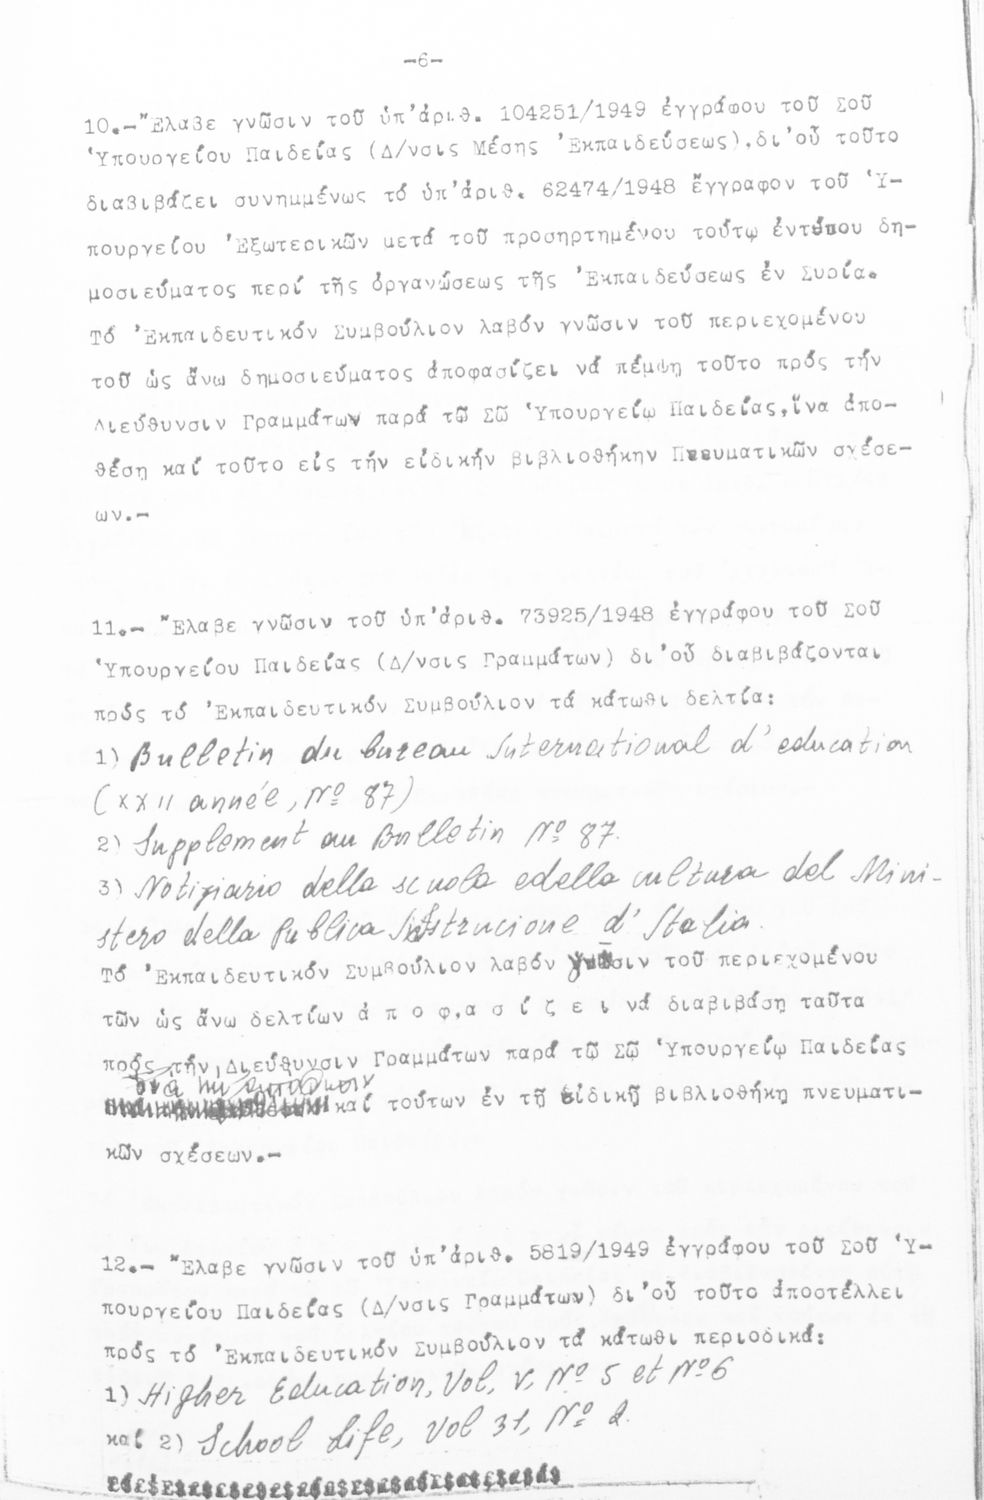 -6-
10.-Ἔλαβε γνῶσιν τοῦ ὑπ'ἀριθ. 104251/1949 ἐγγράφου τοῦ Σοῦ
Ὑπουργείου Παιδείας (Δ/νσις Μέσης Ἐκπαιδεύσεως), δι'οὗ τοῦτο
διαβιβάζει συνημμένως τό ὑπ'ἀριθ. 62474/1948 ἔγγραφον τοῦ Ὑ-
πουργείου Ἐξωτερικῶν μετά τοῦ προσηρτημένου τούτῳ ἐντύπου δη-
μοσιεύματος περί τῆς ὀργανώσεως τῆς Ἐκπαιδεύσεως ἐν Συρίᾳ.
Τό Ἐκπαιδευτικόν Συμβούλιον λαβόν γνῶσιν τοῦ περιεχομένου
τοῦ ὡς ἄνω δημοσιεύματος ἀποφασίζει νά πέμψη τοῦτο πρός τήν
Διεύθυνσιν Γραμμάτων παρά τῷ Σῷ Ὑπουργείῳ Παιδείας, ἵνα ἀπο-
θέση καί τοῦτο εἰς τήν εἰδικήν βιβλιοθήκην Πνευματικῶν σχέσε-
ων.-
11.- Ἔλαβε γνῶσιν τοῦ ὑπ'ἀριθ. 73925/1948 ἐγγράφου τοῦ Σοῦ
Ὑπουργείου Παιδείας (Δ/νσις Γραμμάτων) δι'οὗ διαβιβάζονται
πρός τό Ἐκπαιδευτικόν Συμβούλιον τά κάτωθι δελτία:
1) Bulletin du bureau International d'education
(XXII année, Nº 87)
2) Supplement au Bulletin Nº 87.
3) Notiziario della scuola edella cultura del Mini-
stero della Publica Instrucione d'Italia.
Τό Ἐκπαιδευτικόν Συμβούλιον λαβόν γνῶσιν τοῦ περιεχομένου
τῶν ὡς ἄνω δελτίων ἀ π ο φ α σ ί ζ ε ι νά διαβιβάση ταῦτα
πρός τήν Διεύθυνσιν Γραμμάτων παρά τῷ Σῷ Ὑπουργείῳ Παιδείας
καί τούτων ἐν τῇ εἰδικῇ βιβλιοθήκῃ πνευματι-
κῶν σχέσεων.-
12.- Ἔλαβε γνῶσιν τοῦ ὑπ'ἀριθ. 5819/1949 ἐγγράφου τοῦ Σοῦ Ὑ-
πουργείου Παιδείας (Δ/νσις Γραμμάτων) δι'οὗ τοῦτο ἀποστέλλει
πρός τό Ἐκπαιδευτικόν Συμβούλιον τά κάτωθι περιοδικά:
1) Higher Education, Vol, V, Nº 5 et Nº 6
καί 2) School Life, Vol 31, Nº 2.